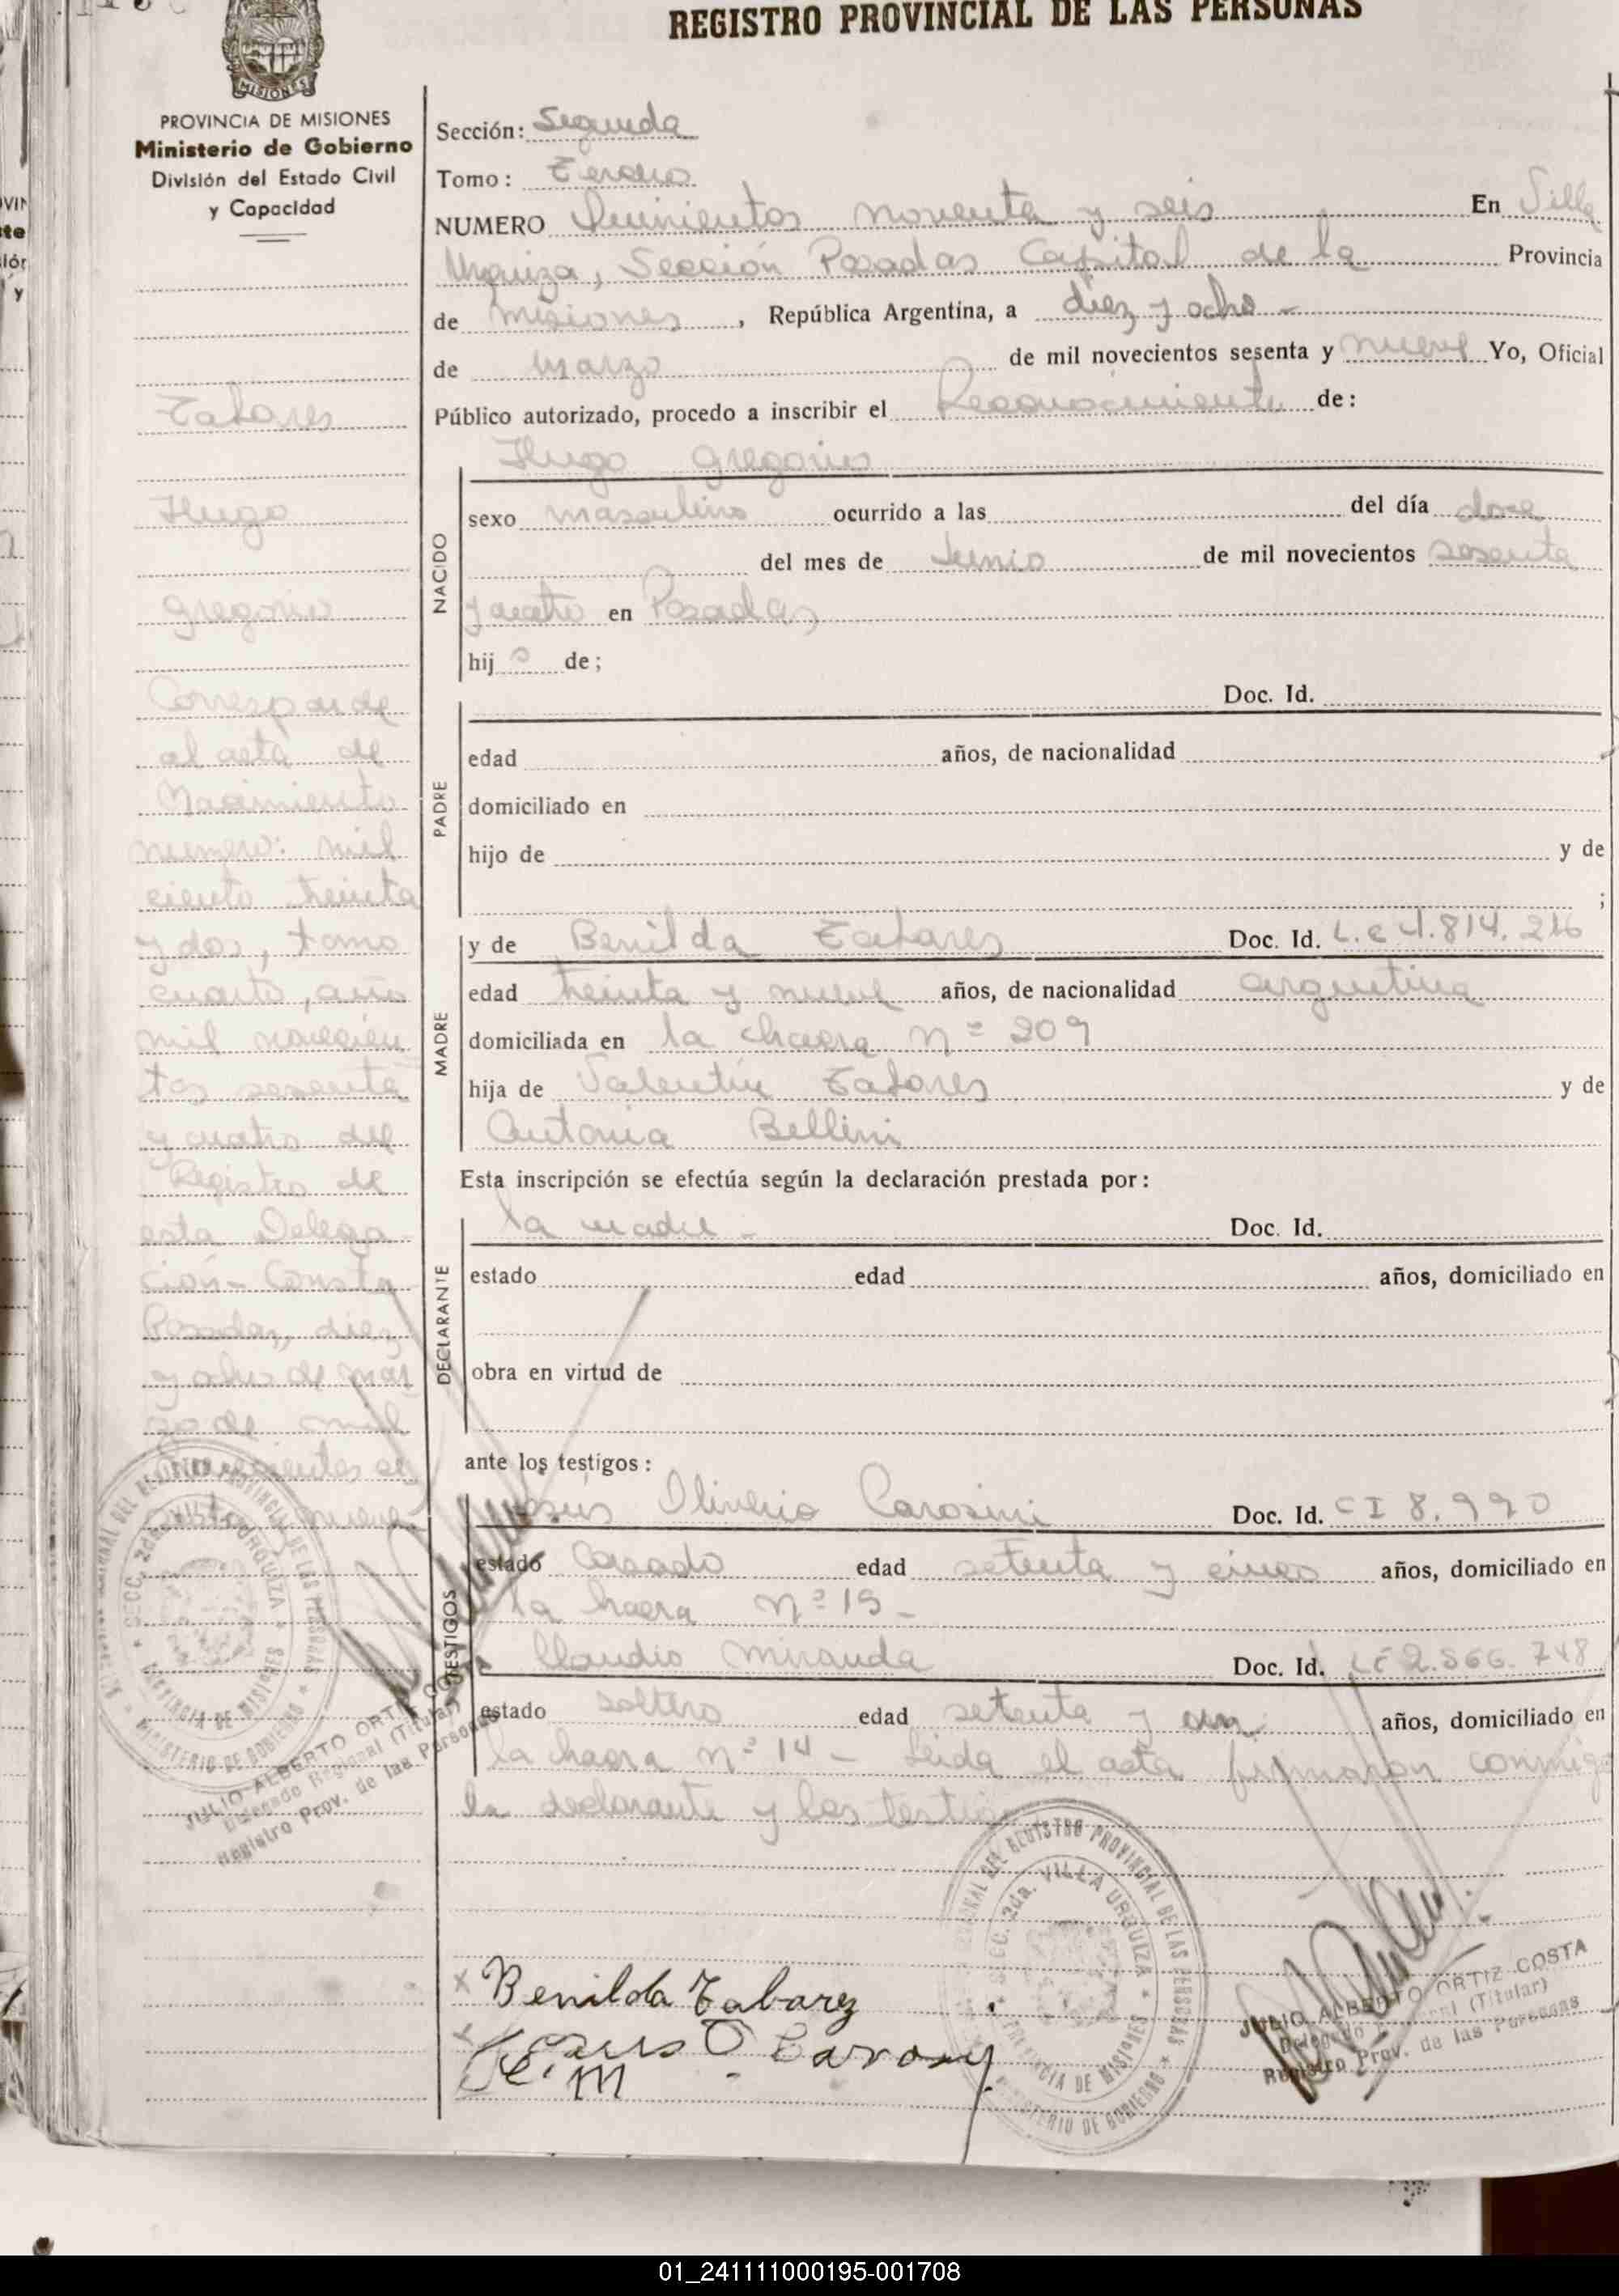 REGISTRO PROVINCIAL DE LAS PERSONAS
MISIONES
PROVINCIA DE MISIONES
Ministerio de Gobierno
División del Estado Civil
y Capacidad
Tabares
Hugo
Gregorio
Corresponde
al acta de
Nacimiento
numero: mil
ciento treinta
y dos, tomo
cuarto, año
mil novecien
tos sesenta
y cuatro del
Registro de
esta Delega
ción - Consta
Posadas, diez
y ocho de mar
zo de mil
novecientos se
nueve
JULIO ALBERTO ORTIZ COSTA
Delegado Regional (Titular)
Registro Prov. de las Personas
Sección: Segunda
Tomo: Tercero
NUMERO Quinientos noventa y seis En Villa
Urquiza, Sección Posadas Capital de la Provincia
de Misiones, República Argentina, a diez y ocho -
de marzo de mil novecientos sesenta y nueve Yo, Oficial
Público autorizado, procedo a inscribir el Reconocimiento de:
Hugo Gregorio
NACIDO
sexo masculino ocurrido a las del día doce
del mes de Junio de mil novecientos sesenta
y cuatro en Posadas,
hij o de;
PADRE
Doc. Id.
edad años, de nacionalidad
domiciliado en
hijo de y de
;
MADRE
y de Benilda Tabares Doc. Id. L.C 4.814.216
edad treinta y nueve años, de nacionalidad argentina
domiciliada en la chacra Nº 209
hija de Valentín Tabares y de
Antonia Bellini
Esta inscripción se efectúa según la declaración prestada por:
DECLARANTE
la madre - Doc. Id.
estado edad años, domiciliado en
obra en virtud de
ante los testigos:
TESTIGOS
Jesús Oliverio Carosini Doc. Id. CI 8.990
estado Casado edad setenta y cinco años, domiciliado en
la hacra Nº 15 -
Claudio Miranda Doc. Id. LE 2.566.748
estado soltero edad setenta y un años, domiciliado en
la hacra Nº 14 - Leida el acta firmaron conmigo
la declarante y los testigos
DEL REGISTRO PROVINCIAL DE LAS PERSONAS
SECC. 2da. VILLA URQUIZA
PROVINCIA DE MISIONES
MINISTERIO DE GOBIERNO
x Benilda Tabarez
x Jesus O Carosiny
C. M
JULIO ALBERTO ORTIZ COSTA
Delegado Regional (Titular)
Registro Prov. de las Personas
01_241111000195-001708